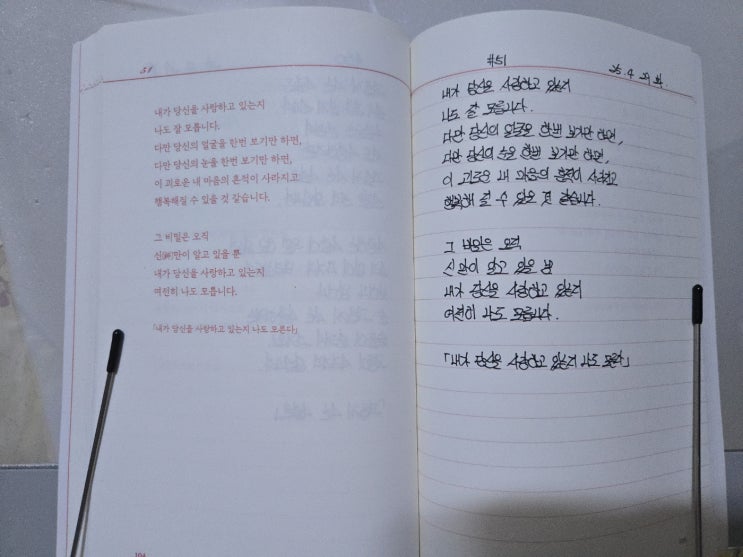 51
내가 당신을 사랑하고 있는지
나도 잘 모릅니다.
다만 당신의 얼굴을 한번 보기만 하면,
다만 당신의 눈을 한번 보기만 하면,
이 괴로운 내 마음의 흔적이 사라지고
행복해질 수 있을 것 같습니다.
그 비밀은 오직
신(神)만이 알고 있을 뿐
내가 당신을 사랑하고 있는지
여전히 나도 모릅니다.
「내가 당신을 사랑하고 있는지 나도 모른다」
104
#51
25. 4. 29. 화.
내가 당신을 사랑하고 있는지
나도 잘 모릅니다.
다만 당신의 얼굴을 한번 보기만 하면,
다만 당신의 눈을 한번 보기만 하면,
이 괴로운 내 마음의 흔적이 사라지고
행복해 질 수 있을 것 같습니다.
그 비밀은 오직
신만이 알고 있을 뿐
내가 당신을 사랑하고 있는지
여전히 나도 모릅니다.
「내가 당신을 사랑하고 있는지 나도 모른다」